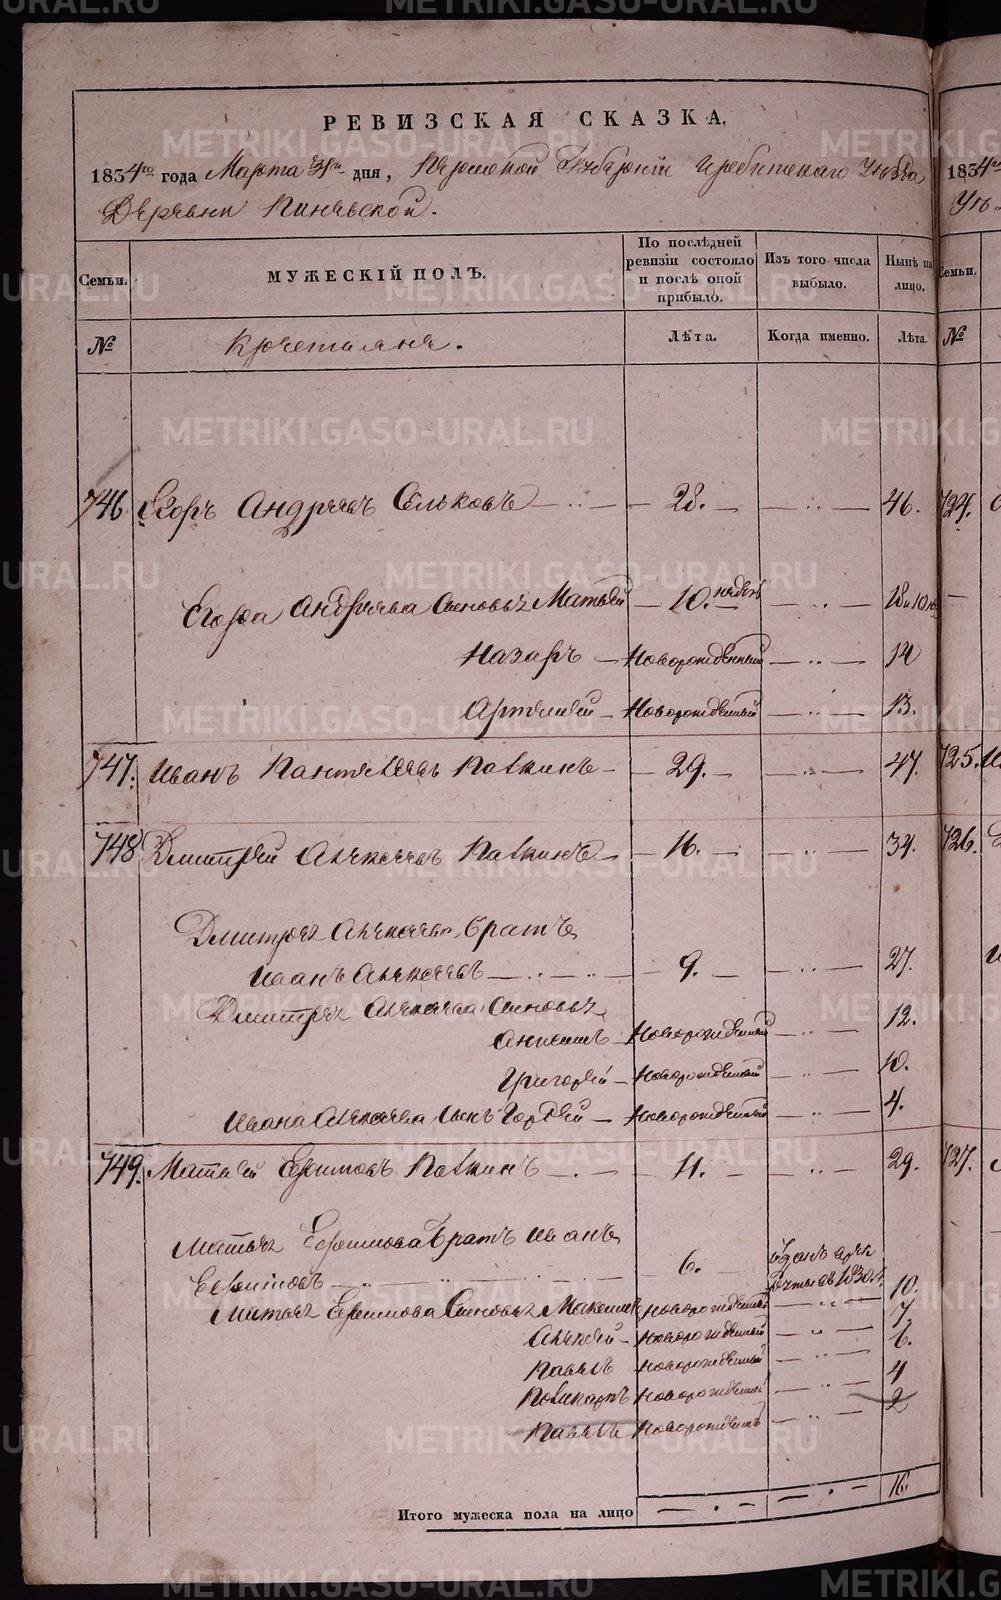 РЕВИЗСКАЯ СКАЗКА,
1834го года Марта дня, Пермской Губерніи Ирбитскаго Уѣзда
Деревни
Семьи. МУЖЕСКІЙ ПОЛЪ. По послѣдней ревизіи состояло и послѣ оной прибыло. Изъ того числа выбыло. Нынѣ на лицо.
№ Крестьяне. Лѣта. Когда именно. Лѣта.
746 Егоръ Андреевъ Сельковъ 28. 46.
Егора Андреева Сыновья Матвей 10. недель 18 и 10
Назаръ Новорожденный 14
Артемей Новорожденный 13.
747. Иванъ Пантелеевъ Павкинъ 29. 47.
748 Дмитрей Алексеевъ Павкинъ 16. 34.
Дмитрея Алексеева братъ
Иванъ Алексеевъ 9. 27.
Дмитрея Алексеева Сыновья
Новорожденный 12.
Григорей Новорожденный 10.
Ивана Алексеева Сынъ Гордей Новорожденный 4.
749. Матвей Ефимовъ Павкинъ 11. 29.
Матвея Ефимова братъ Иванъ
Ефимовъ 6.
Матвея Ефимова Сыновья Максимъ новорожденный 10.
Алексей Новорожденный 7.
Павелъ новорожденный 6.
Поликарпъ Новорожденный 4
Павелъ Новорожденный 2
Итого мужеска пола на лицо 16.
1834
Семьи.
№
724.
725.
726.
727.
METRIKI.GASO-URAL.RU